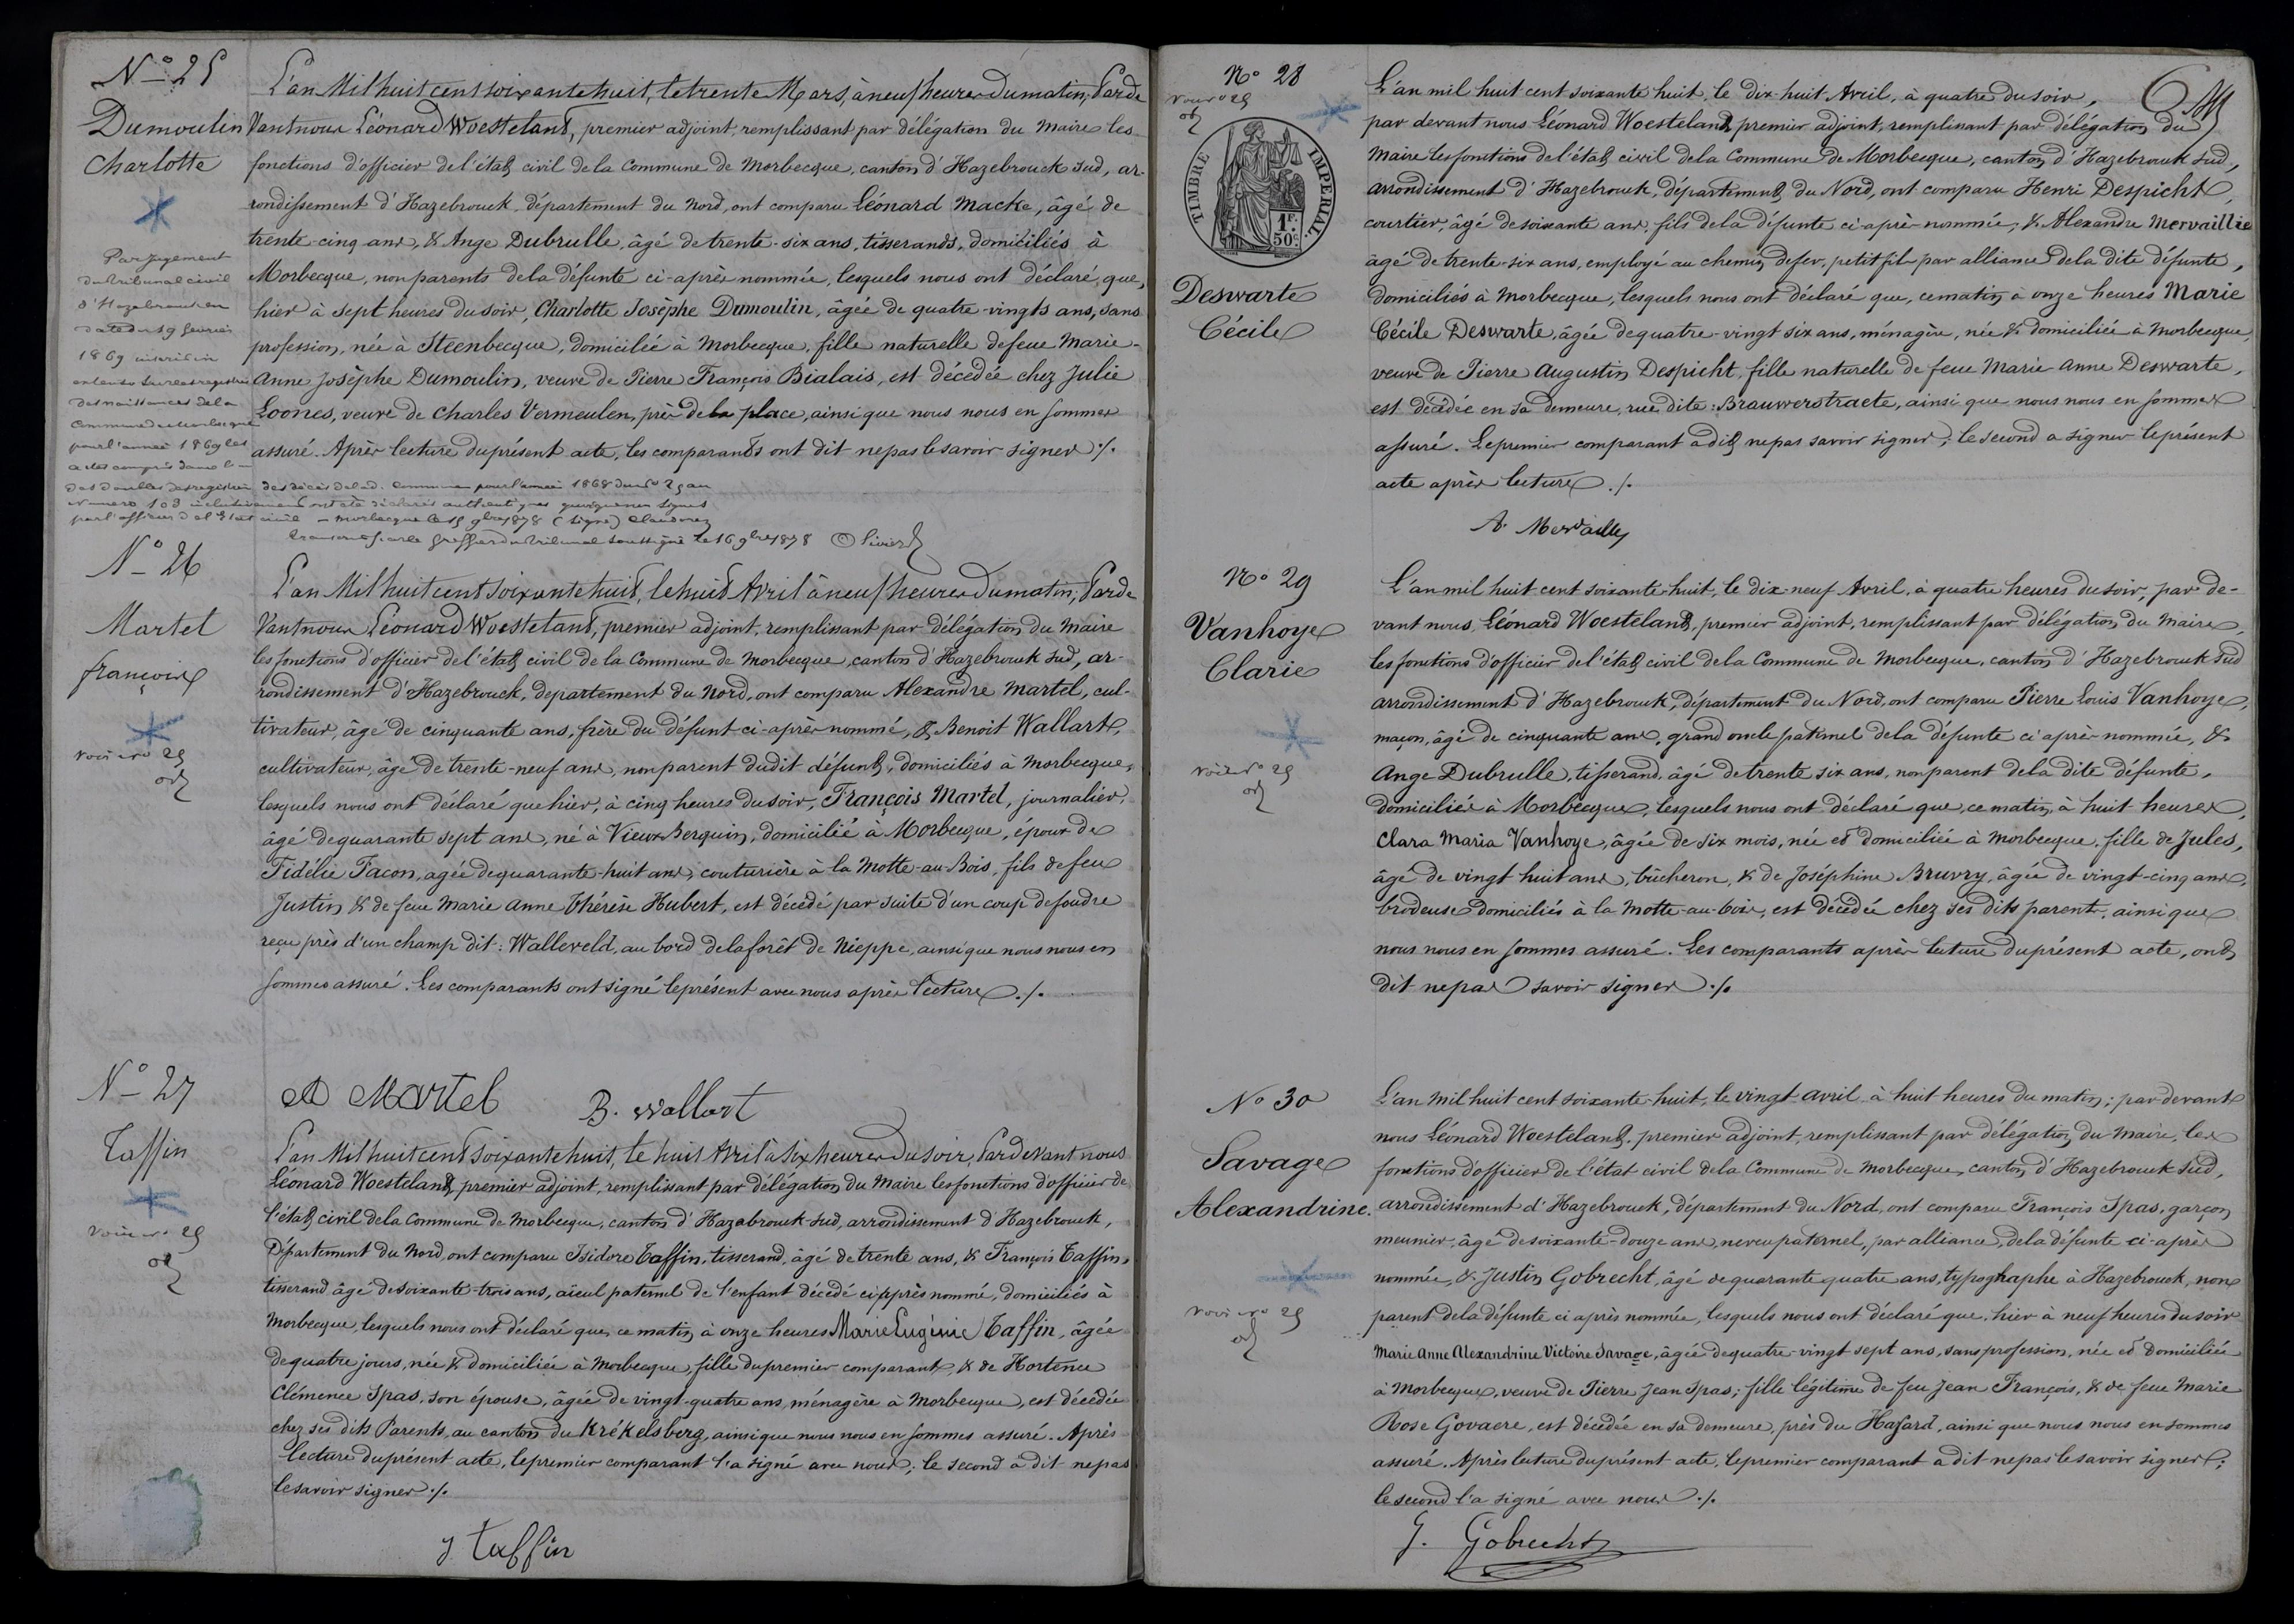 N° 25
Dumoulin
Charlotte
L'an Mil huit cent soixante huit, le trente Mars, à neuf heures du matin, Par de
Vant nous Léonard Woesteland, premier adjoint, remplissant par délégation du Maire les
fonctions d'officier de l'état civil de la Commune de Morbecque, canton d'Hazebrouck sud, ar-
rondissement d'Hazebrouck, département du Nord, ont comparu Léonard Macke, âgé de
trente-cinq ans, & Ange Dubrulle, âgé de trente-six ans, tisserands, domiciliés à
Morbecque, non parents de la défunte ci-après nommée, lesquels nous ont déclaré, que,
hier à sept heures du soir, Charlotte Josèphe Dumoulin, âgée de quatre-vingts ans, sans
profession, née à Steenbecque, domiciliée à Morbecque, fille naturelle de feue Marie-
Anne Josèphe Dumoulin, veuve de Pierre François Bialais, est décédée chez Julie
Loones, veuve de Charles Vermeulen, près de la place, ainsi que nous nous en sommes
assuré. Après lecture du présent acte, les comparants ont dit ne pas le savoir signer ./.
Par jugement
du tribunal civil
d'Hazebrouck en
date du 19 février
1869 inscrit in
extenso sur les registres
des naissances de la
commune de Morbecque
pour l'année 1869 les
actes compris dans le
des doubles des registres des décès de lad. commune pour l'année 1868 du n° 25 au
numéro 103 inclusivement ont été déclarés authentiques quoique non signés
par l'officier de l'Etat civil - Morbecque le 15 9bre 1878 (signé)
transcrit par le Greffier du tribunal soussigné le 16 9bre 1878
N° 26
Martel
françois
voir n° 25
L'an Mil huit cent soixante huit, le huit Avril à neuf heures du matin, Par de
Vant nous Léonard Woesteland, premier adjoint, remplissant par délégation du Maire
les fonctions d'officier de l'état civil de la Commune de Morbecque, canton d'Hazebrouck sud, ar-
rondissement d'Hazebrouck, département du Nord, ont comparu Alexandre Martel, cul-
tivateur, âgé de cinquante ans, frère du défunt ci-après nommé, & Benoit Wallart,
cultivateur, âgé de trente-neuf ans, non parent dudit défunt, domiciliés à Morbecque,
lesquels nous ont déclaré que hier, à cinq heures du soir, François Martel, journalier,
âgé de quarante sept ans, né à Vieux Berquin, domicilié à Morbecque, époux de
Fidélie Facon, âgée de quarante-huit ans, couturière à la Motte-au-Bois, fils de feu
Justin & de feue Marie Anne Thérèse Hubert, est décédé par suite d'un coup de foudre
reçu près d'un champ dit: Walleveld, au bord de la forêt de Nieppe, ainsi que nous nous en
sommes assuré. Les comparants ont signé le présent avec nous après lecture ./.
A Martel B. Wallart
N° 27
Taffin
voir n° 25
L'an Mil huit cent soixante huit, le huit Avril à six heures du soir, Par devant nous
Léonard Woesteland, premier adjoint, remplissant par délégation du Maire les fonctions d'officier de
l'état civil de la Commune de Morbecque, canton d'Hazabrouck-sud, arrondissement d'Hazebrouck,
Département du Nord, ont comparu Isidore Taffin, tisserand, âgé de trente ans, & François Taffin,
tisserand âgé de soixante-trois ans, aïeul paternel de l'enfant décédé ci après nommé, domiciliés à
Morbecque, lesquels nous ont déclaré que, ce matin à onze heures Marie Eugénie Taffin, âgée
de quatre jours, née & domiciliée à Morbecque, fille du premier comparant, & de Hortence
Clémence Spas, son épouse, âgée de vingt-quatre ans, ménagère à Morbecque, est décédée
chez ses dits Parents, au canton du Krékelsberg, ainsi que nous nous en sommes assuré. Après
lecture du présent acte, le premier comparant l'a signé avec nous; le second a dit ne pas
le savoir signer ./.
J Taffin
N° 28
voir n° 25
TIMBRE IMPERIAL
1F. 50C.
Deswarte
Cécile
L'an mil huit cent soixante huit, le dix-huit Avril, à quatre du soir,
par devant nous Léonard Woesteland, premier adjoint, remplissant par délégation du
Maire les fonctions de l'état civil de la Commune de Morbecque, canton d'Hazebrouck sud,
arrondissement d'Hazebrouck, département du Nord, ont comparu Henri Despicht,
courtier, âgé de soixante ans, fils de la défunte ci-après nommée, & Alexandre Mervaillie
âgé de trente-six ans, employé au chemin de fer, petit fils par alliance de la dite défunte,
domiciliés à Morbecque, lesquels nous ont déclaré que, ce matin à onze heures Marie
Cécile Deswarte, âgée de quatre-vingt six ans, ménagère, née & domiciliée à Morbecque,
veuve de Pierre Augustin Despicht, fille naturelle de feue Marie-Anne Deswarte,
est décédée en sa demeure, rue dite: Brauwerstraete, ainsi que nous nous en sommes
assuré. Le premier comparant a dit ne pas savoir signer; le second a signer le présent
acte après lecture ./.
A. Mervaillie
N° 29
Vanhoye
Clarie
voir n° 25
L'an mil huit cent soixante-huit, le dix-neuf Avril, à quatre heures du soir, par de-
vant nous, Léonard Woesteland, premier adjoint, remplissant par délégation du Maire,
les fonctions d'officier de l'état civil de la Commune de Morbecque, canton d'Hazebrouck sud
arrondissement d'Hazebrouck, département du Nord, ont comparu Pierre Louis Vanhoye,
maçon, âgé de cinquante ans, grand oncle paternel de la défunte ci après nommée, &
Ange Dubrulle, tisserand, âgé de trente six ans, non parent de la dite défunte,
domiciliés à Morbecque, lesquels nous ont déclaré que, ce matin, à huit heures,
Clara Maria Vanhoye, âgée de six mois, née et domiciliée à Morbecque, fille de Jules,
âgé de vingt huit ans, bûcheron, & de Joséphine Bruvry, âgée de vingt-cinq ans,
brodeuse domiciliés à la Motte-au-bois, est décédée chez ses dits parents, ainsi que
nous nous en sommes assuré. Les comparants après lecture du présent acte, ont
dit ne pas savoir signer ./.
N° 30
Savage
Alexandrine.
voir n° 25
L'an mil huit cent soixante-huit, le vingt Avril à huit heures du matin; par devant
nous Léonard Woesteland, premier adjoint, remplissant par délégation du Maire, les
fonctions d'officier de l'état civil de la Commune de Morbecque, canton d'Hazebrouck Sud,
arrondissement d'Hazebrouck, département du Nord, ont comparu François Spas, garçon
meunier, âgé de soixante-douze ans, neveu paternel, par alliance, de la défunte ci-après
nommée, & Justin Gobrecht, âgé de quarante quatre ans, typographe à Hazebrouck, non
parent de la défunte ci après nommée, lesquels nous ont déclaré que, hier à neuf heures du soir
Marie Anne Alexandrine Victoire Savage, âgée de quatre-vingt sept ans, sans profession, née et domiciliée
à Morbecque, veuve de Pierre Jean Spas; fille légitime de feu Jean François, & de feue Marie
Rose Govaere, est décédée en sa demeure, près du Hasard, ainsi que nous nous en sommes
assuré. Après lecture du présent acte, le premier comparant a dit ne pas le savoir signer;
le second l'a signé avec nous ./.
J. Gobrecht